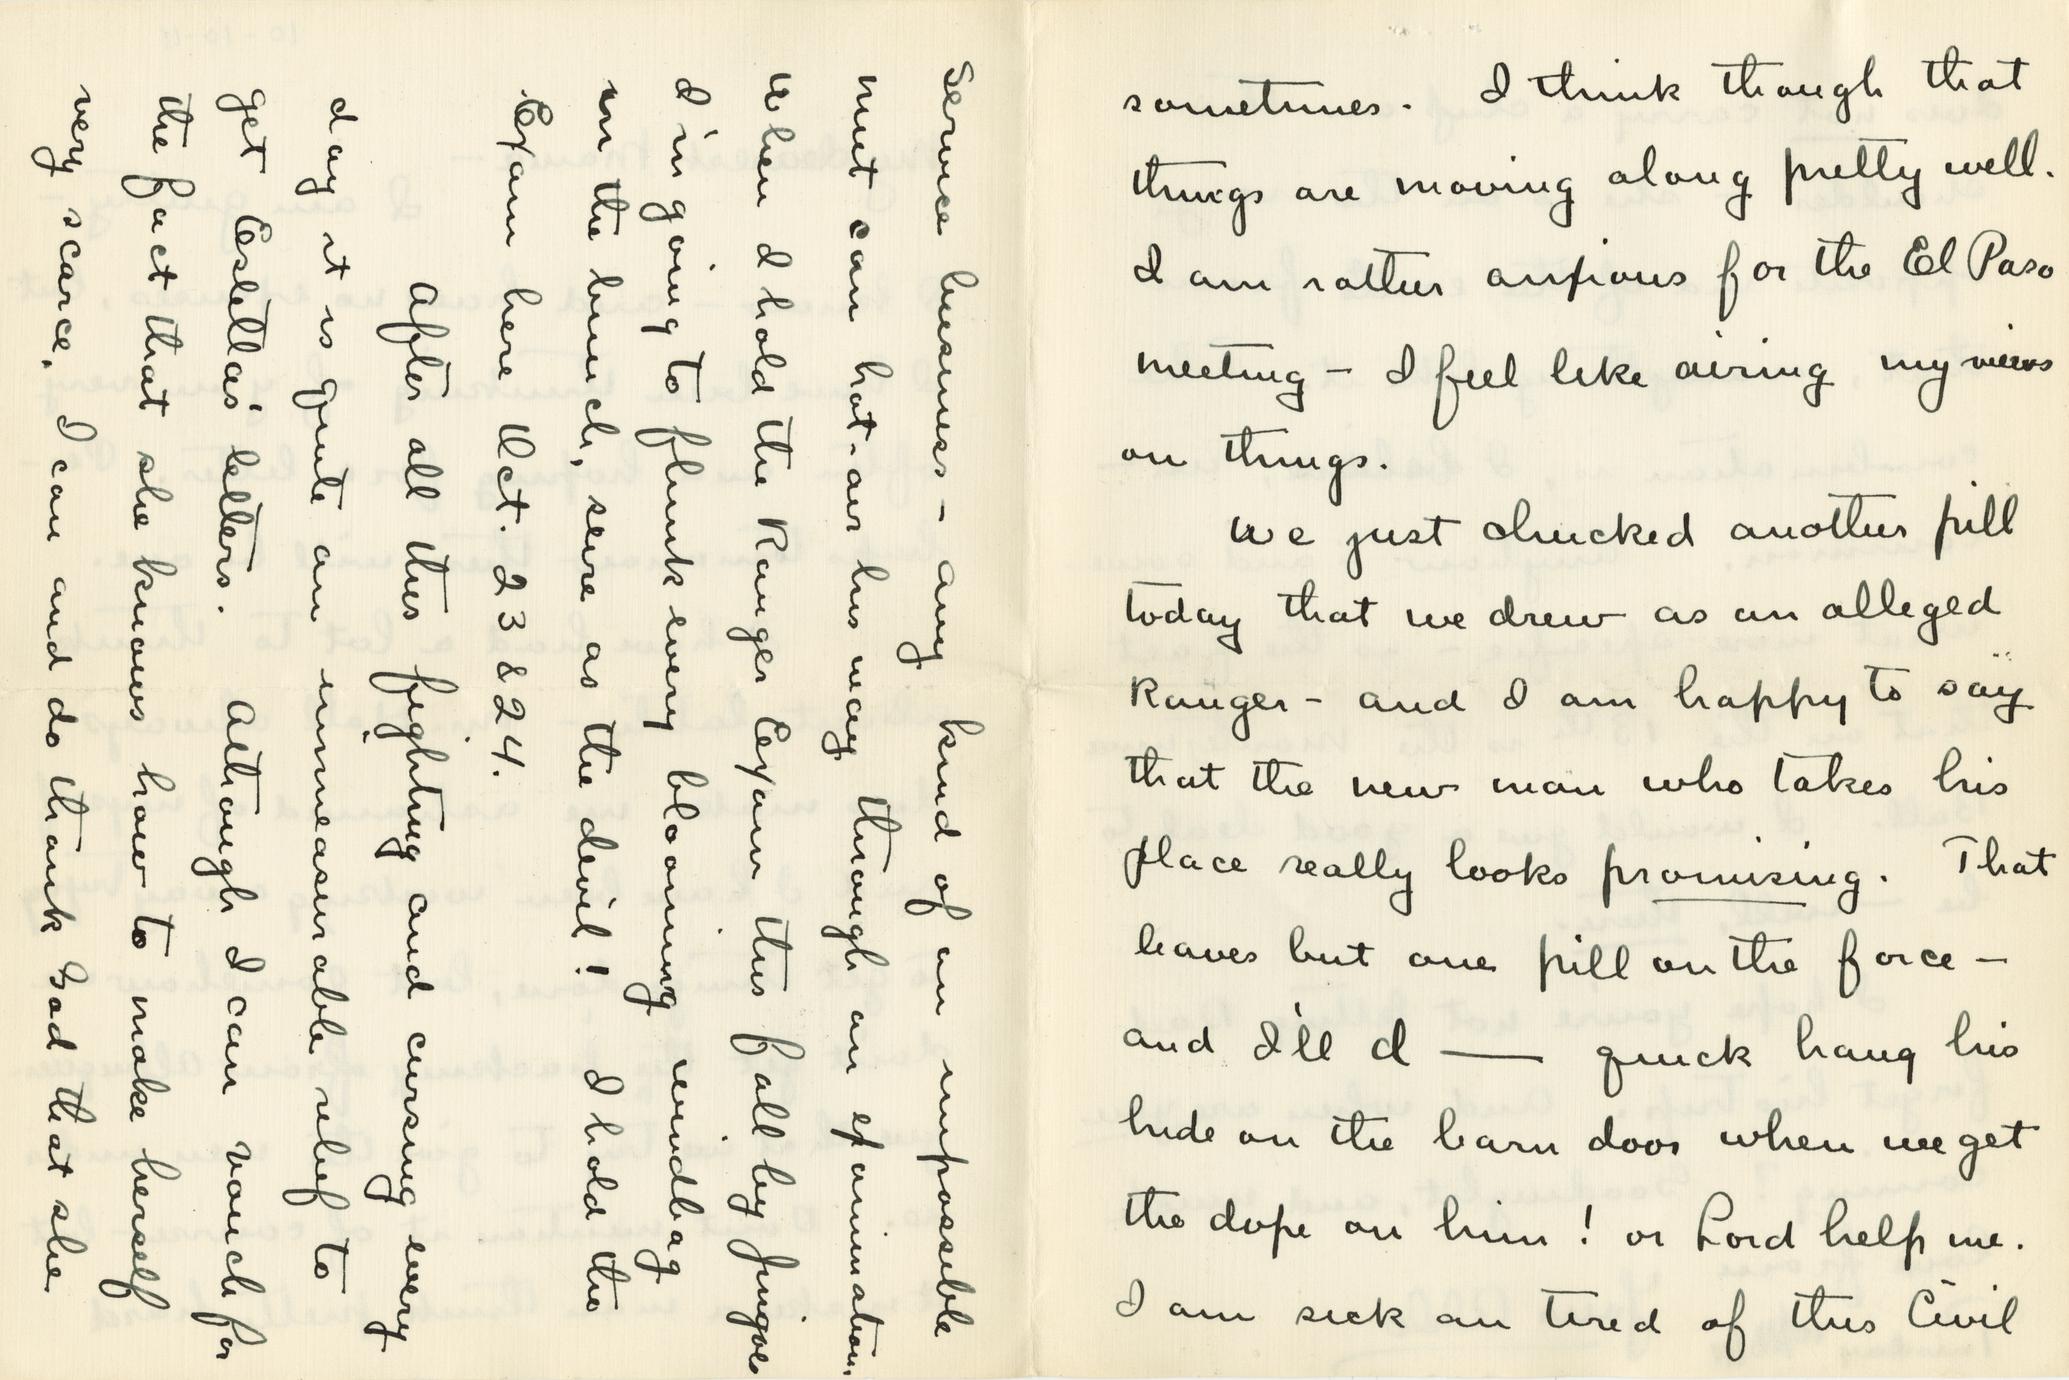 sometimes. I think though that
things are moving along pretty well.
I am rather anxious for the El Paso
meeting – I feel like airing my views
on things.
We just chucked another pill
today that we drew as an alleged
Ranger – and I am happy to say
that the new man who takes his
place really looks promising. That
leaves but one pill on the force –
and I'll d —— quick hang his
hide on the barn door when we get
the dope on him! or Lord help me.
I am sick an tired of this Civil
Service business – any kind of an impossible
nut can hot-air his way through an examination.
When I hold the Ranger Exam this fall by Jingoes
I'm going to flunk every blooming windbag
in the bunch, sure as the devil! I hold the
Exam here Oct. 23 & 24.
After all this fighting and cursing every
day it is quite an immeasurable relief to
get Estella's letters. Although I can vouch for
the fact that she knows how to make herself
very scarce, I can and do thank God that she